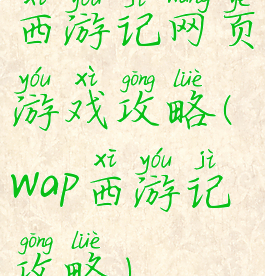 xī yóu jì wǎng yè
西游记网页
yóu xì gōng lüè
游戏攻略(
xī yóu jì
wap西游记
gōng lüè
攻略)